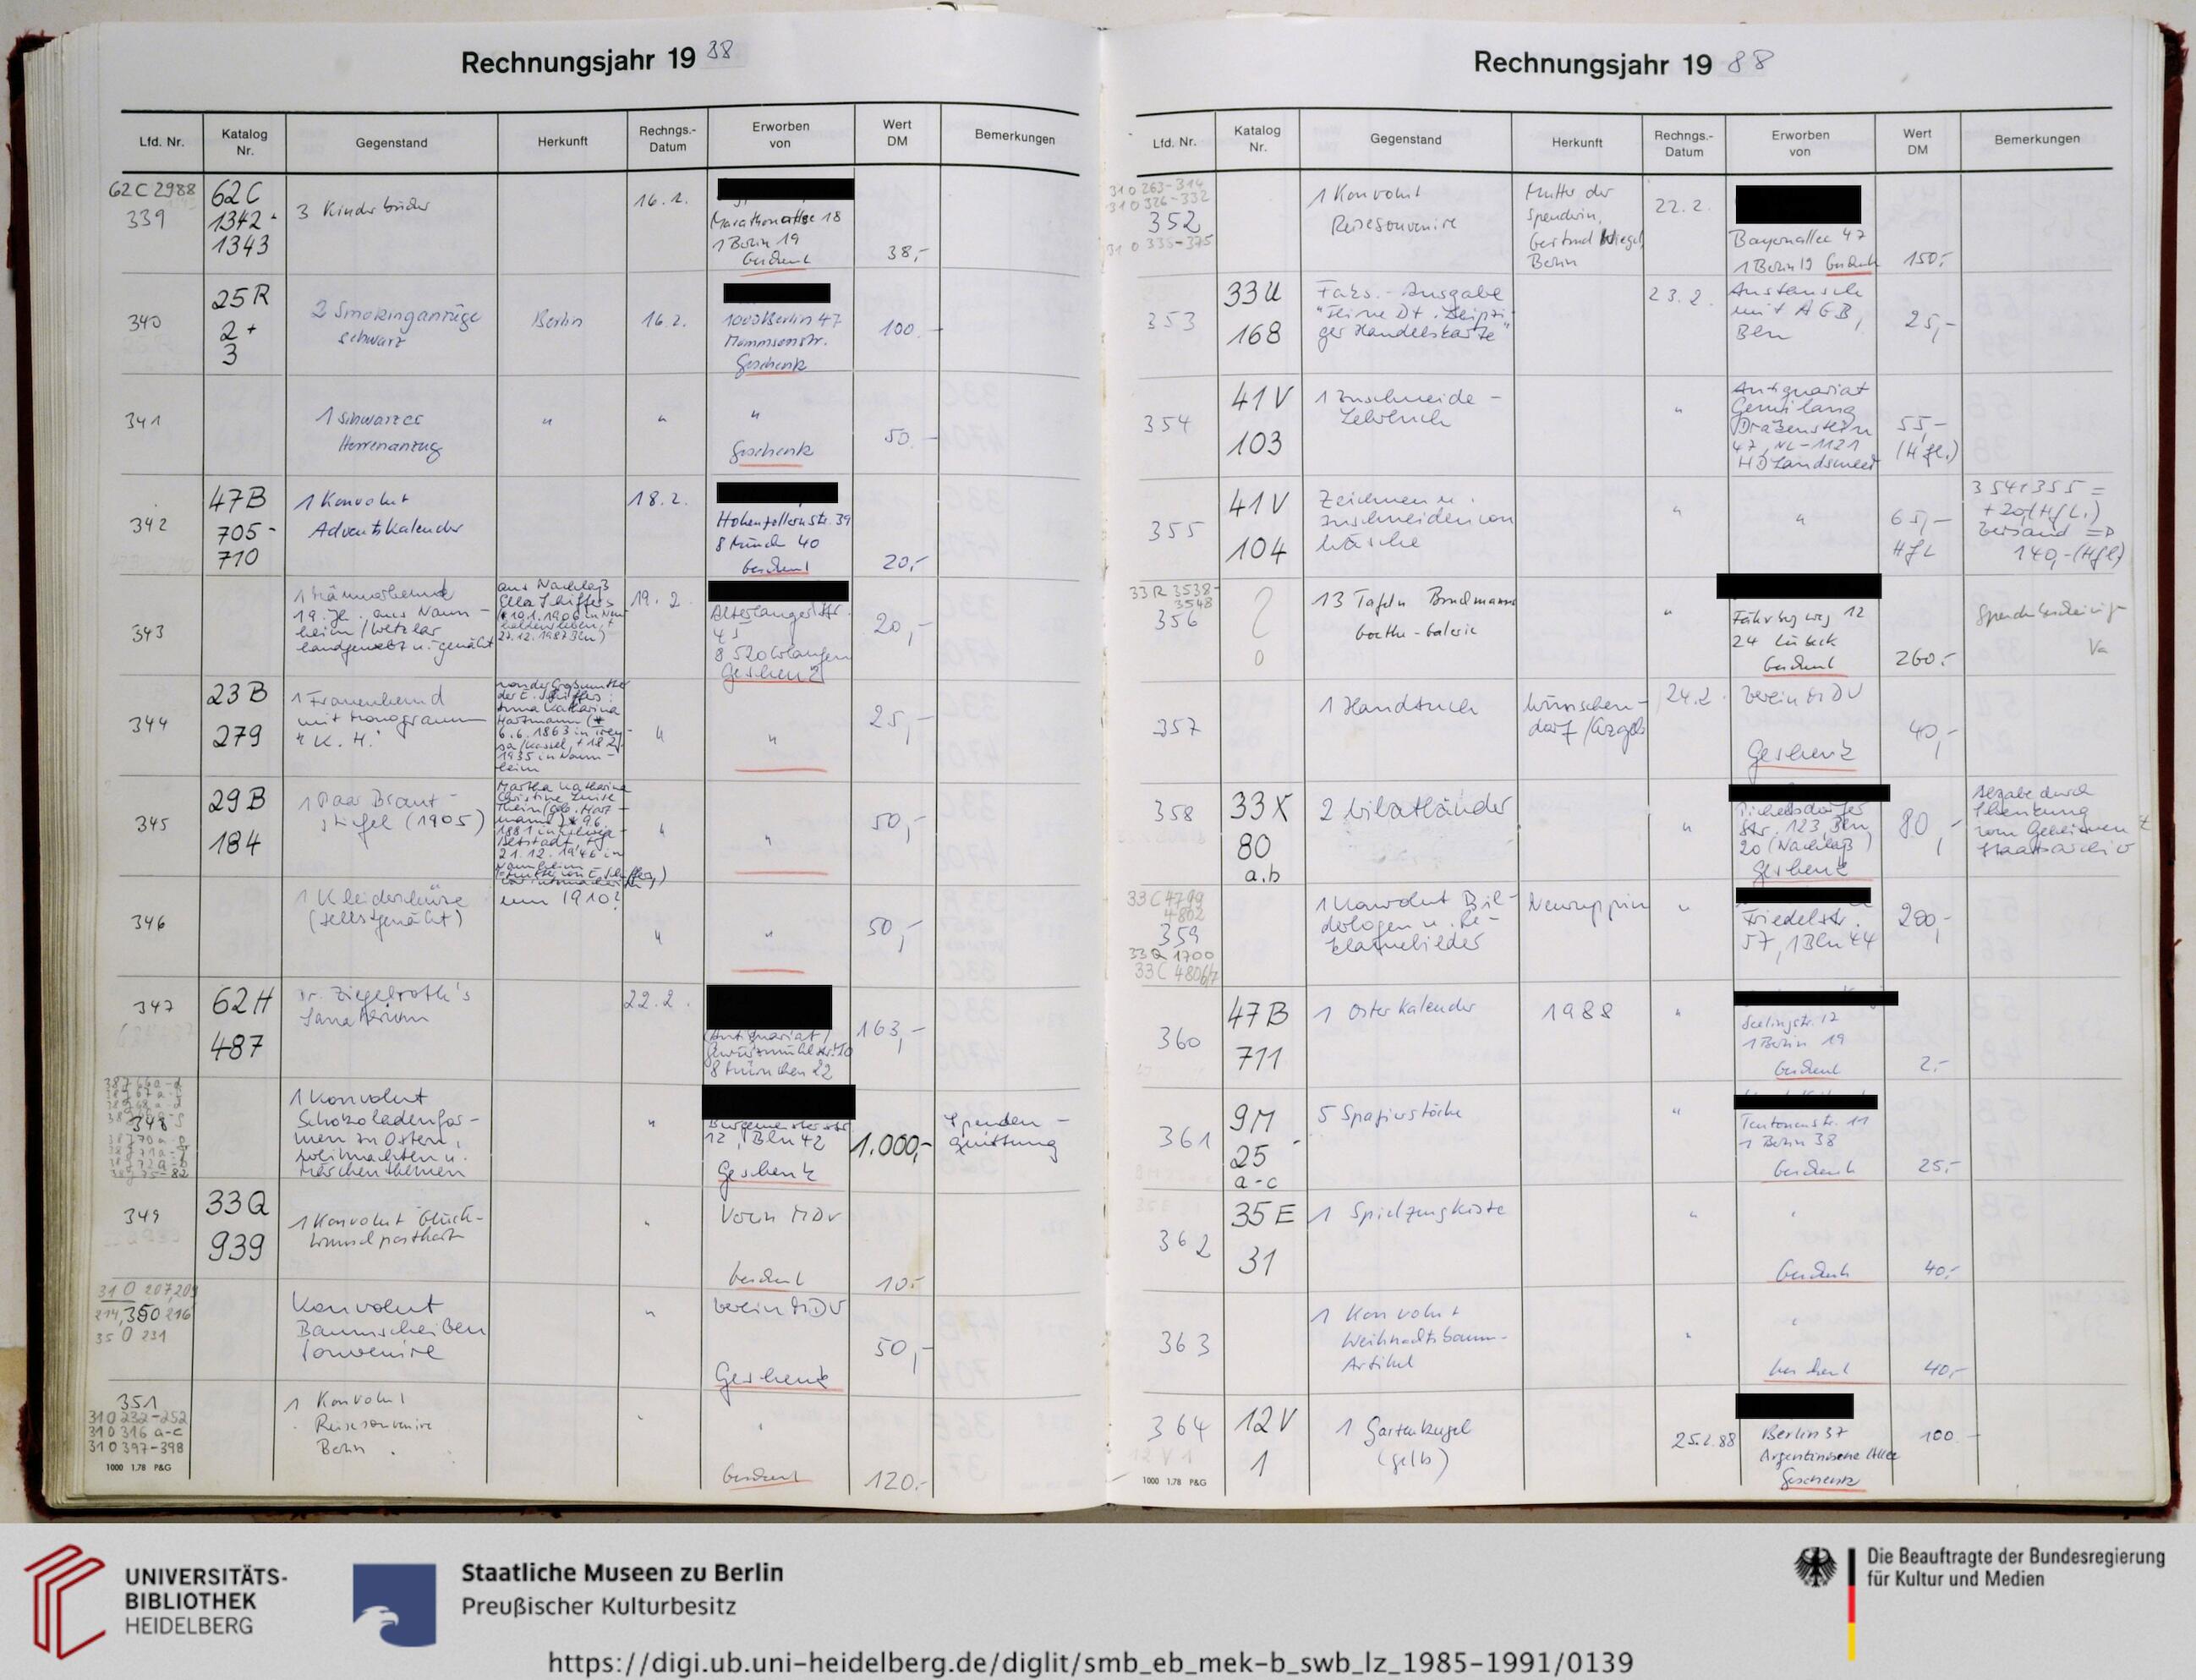 Rechnungsjahr 19 88
Lfd. Nr.
Katalog Nr.
Gegenstand
Herkunft
Rechngs.-Datum
Erworben von
Wert DM
Bemerkungen
62 C 2988
339
62 C
1342 -
1343
3 Kinderbücher
16.2.
Marathonallee 18
1 Berlin 19
Geschenk
38,-
340
25 R
2 +
3
2 Smokinganzüge
schwarz
Berlin
16.2.
1000 Berlin 47
Mommsenstr.
Geschenk
100.-
341
1 schwarzer
Herrenanzug
"
"
"
Geschenk
50.-
342
47 B
705 -
710
1 Konvolut
Adventskalender
18.2.
Hohenzollernstr. 39
8 Münch 40
Geschenk
20,-
343
1 Männerhemd
19. Jh. aus Naun-
heim / Wetzlar
handgewebt u. genäht
aus Nachlaß
Ella Schiffers
19.2.
45
8520 Erlangen
Geschenk
20,-
344
23 B
279
1 Frauenhemd
mit Monogramm
"K. H."
von der Großmutter
der E. Schiffers:
Anna Katharina
Hartmann (*
6.6.1863 in Trey-
sa / Kassel, + 18.2.
1935 in Naun-
heim
"
"
25,-
345
29 B
184
1 Paar Braut-
stiefel (1905)
Martha Katharina
Christine Luise
Thein (geb. Hart-
mann) * 9.6.
21.12.1946 in
Naunheim
"
"
50,-
346
1 Kleiderschürze
(selbstgenäht)
um 1910?
"
"
50,-
347
62 H
487
Dr. Ziegelroth's
Sanatorium
22.2.
(Antiquariat)
Gewürzmühlstr. 10
8 München 22
163,-
348
1 Konvolut
Schokoladenfor-
men zu Ostern,
Weihnachten u.
Märchenthemen
"
Burgemeisterstr.
12, Bln 42
Geschenk
1.000,-
Spenden-
quittung
349
33 Q
939
1 Konvolut Glück-
wunschpostkart
"
Verein MDV
Geschenk
10.-
31 O 207, 209
214, 350 216
35 O 231
Konvolut
Baumscheiben
Souvenire
"
Verein MDV
Geschenk
50,-
351
31 O 232-252
31 O 316 a-c
31 O 397-398
1 Konvolut
Reisesouvenire
Berlin
"
"
Geschenk
120.-
1000 1.78 P&G
Rechnungsjahr 19 88
Lfd. Nr.
Katalog Nr.
Gegenstand
Herkunft
Rechngs.-Datum
Erworben von
Wert DM
Bemerkungen
31 O 263-314
31 O 326-332
352
31 O 335-375
1 Konvolut
Reisesouvenire
Mutter der
Spenderin,
Gertrud Wiegel,
Berlin
22.2.
Bayernallee 47
1 Berlin 19 Geschenk
150.-
353
33 U
168
Faks.-Ausgabe
"Feine Dt. Leipzi-
ger Handelskarte"
23.2.
Austausch
mit AGB,
Bln
25,-
354
41 V
103
1 Zuschneide-
Lehrbuch
"
Antiquariat
Gemilang
47, NL-1121
HD Landsmeer
55,-
(Hfl.)
355
41 V
104
Zeichnen u.
Zuschneiden von
Wäsche
"
"
65,-
Hfl
354+355 =
+20,(Hfl.)
Versand =>
140,-(Hfl)
33 R 3538-
3548
356
?
13 Tafeln Bruckmanns
Goethe-Galerie
"
12
24 Lübeck
Geschenk
260.-
Spendenbescheinig
Va
357
1 Handtuch
Wünschen-
dorf / Erzgeb
24.2.
Verein MDV
Geschenk
40,-
358
33 X
80
a.b
2 Vivatbänder
"
Pichelsdorfer
Str. 123, Bln
20 (Nachlaß)
Geschenk
80,-
Abgabe durch
Schenkung
vom Geheimen
Staatsarchiv
33 C 4799
4802
359
33 Q 1700
33 C 4806/7
1 Konvolut Bil-
derbogen u. Re-
klamebilder
Neuruppin
"
Friedelstr.
57, 1 Bln 44
200,-
360
47 B
711
1 Osterkalender
1988
"
Seelingstr. 12
1 Berlin 19
Geschenk
2.-
361
9 M
25 -
a-c
5 Spazierstöcke
"
Teutonenstr. 11
1 Berlin 38
Geschenk
25.-
362
35 E
31
1 Spielzeugkiste
"
"
Geschenk
40.-
363
1 Konvolut
Weihnachtsbaum-
Artikel
"
"
Geschenk
40.-
364
12 V
1
1 Gartenkugel
(gelb)
25.2.88
Berlin 37
Argentinische Allee
Geschenk
100.-
1000 1.78 P&G
UNIVERSITÄTS-
BIBLIOTHEK
HEIDELBERG
Staatliche Museen zu Berlin
Preußischer Kulturbesitz
Die Beauftragte der Bundesregierung
für Kultur und Medien
https://digi.ub.uni-heidelberg.de/diglit/smb_eb_mek-b_swb_lz_1985-1991/0139